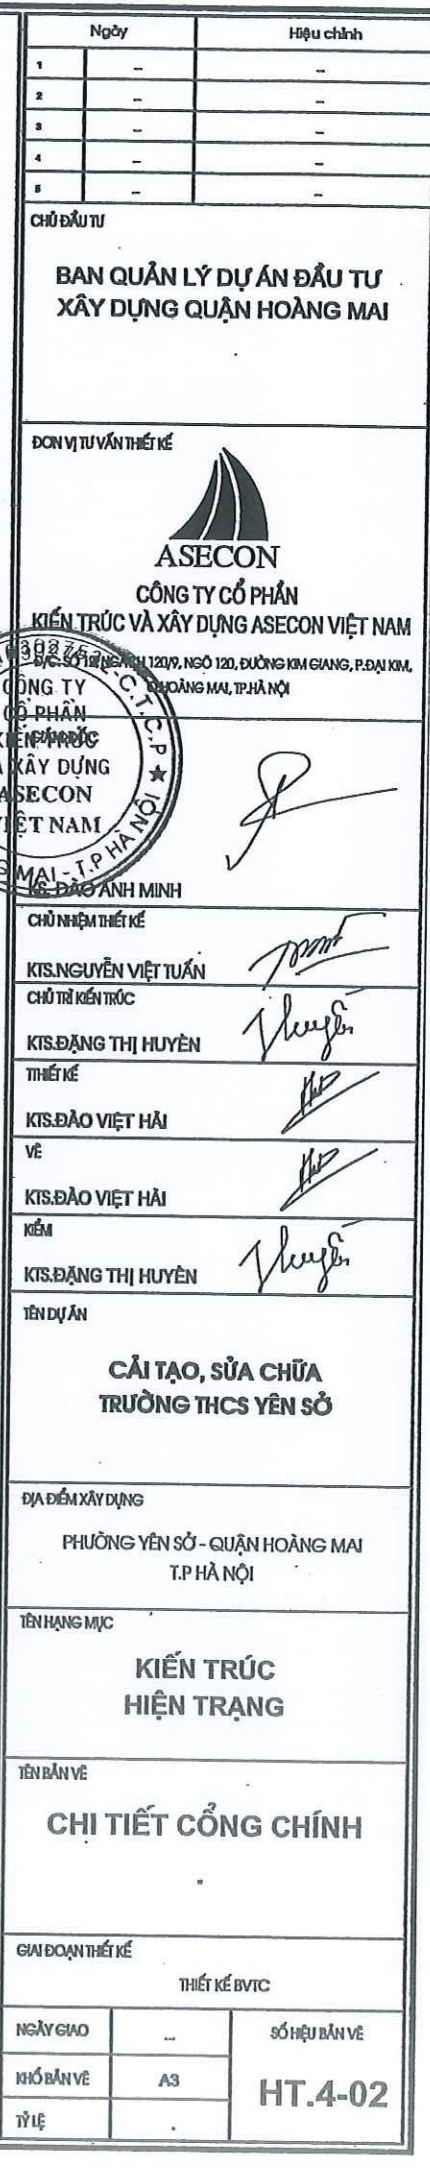 Ngày Hiệu chỉnh
1 – –
2 – –
3 – –
4 – –
5 – –
CHỦ ĐẦU TƯ
BAN QUẢN LÝ DỰ ÁN ĐẦU TƯ
XÂY DỰNG QUẬN HOÀNG MAI
ĐƠN VỊ TƯ VẤN THIẾT KẾ
ASECON
CÔNG TY CỔ PHẦN
KIẾN TRÚC VÀ XÂY DỰNG ASECON VIỆT NAM
Đ/C: SỐ 12, NGÁCH 120/9, NGÕ 120, ĐƯỜNG KIM GIANG, P.ĐẠI KIM,
Q.HOÀNG MAI, TP.HÀ NỘI
CÔNG TY
CỔ PHẦN
KIẾN TRÚC
XÂY DỰNG
ASECON
VIỆT NAM
C.T.C.P
MAI - T.P HÀ NỘI
GIÁM ĐỐC
KS. ĐÀO ANH MINH
CHỦ NHIỆM THIẾT KẾ
KTS.NGUYỄN VIỆT TUẤN
CHỦ TRÌ KIẾN TRÚC
KTS.ĐẶNG THỊ HUYÈN
Huyền
TIHIẾT KẾ
KTS.ĐÀO VIỆT HẢI
VẼ
KTS.ĐÀO VIỆT HẢI
KIỂM
KTS.ĐẶNG THỊ HUYÈN
Huyền
TÊN DỰ ÁN
CẢI TẠO, SỬA CHỮA
TRƯỜNG THCS YÊN SỞ
ĐỊA ĐIỂM XÂY DỰNG
PHƯỜNG YÊN SỞ - QUẬN HOÀNG MAI
T.P HÀ NỘI
TÊN HẠNG MỤC
KIẾN TRÚC
HIỆN TRẠNG
TÊN BẢN VẼ
CHI TIẾT CỔNG CHÍNH
GIAI ĐOẠN THIẾT KẾ
THIẾT KẾ BVTC
NGÀY GIAO ... SỐ HIỆU BẢN VẼ
KHỔ BẢN VẼ A3 HT.4-02
TỶ LỆ .